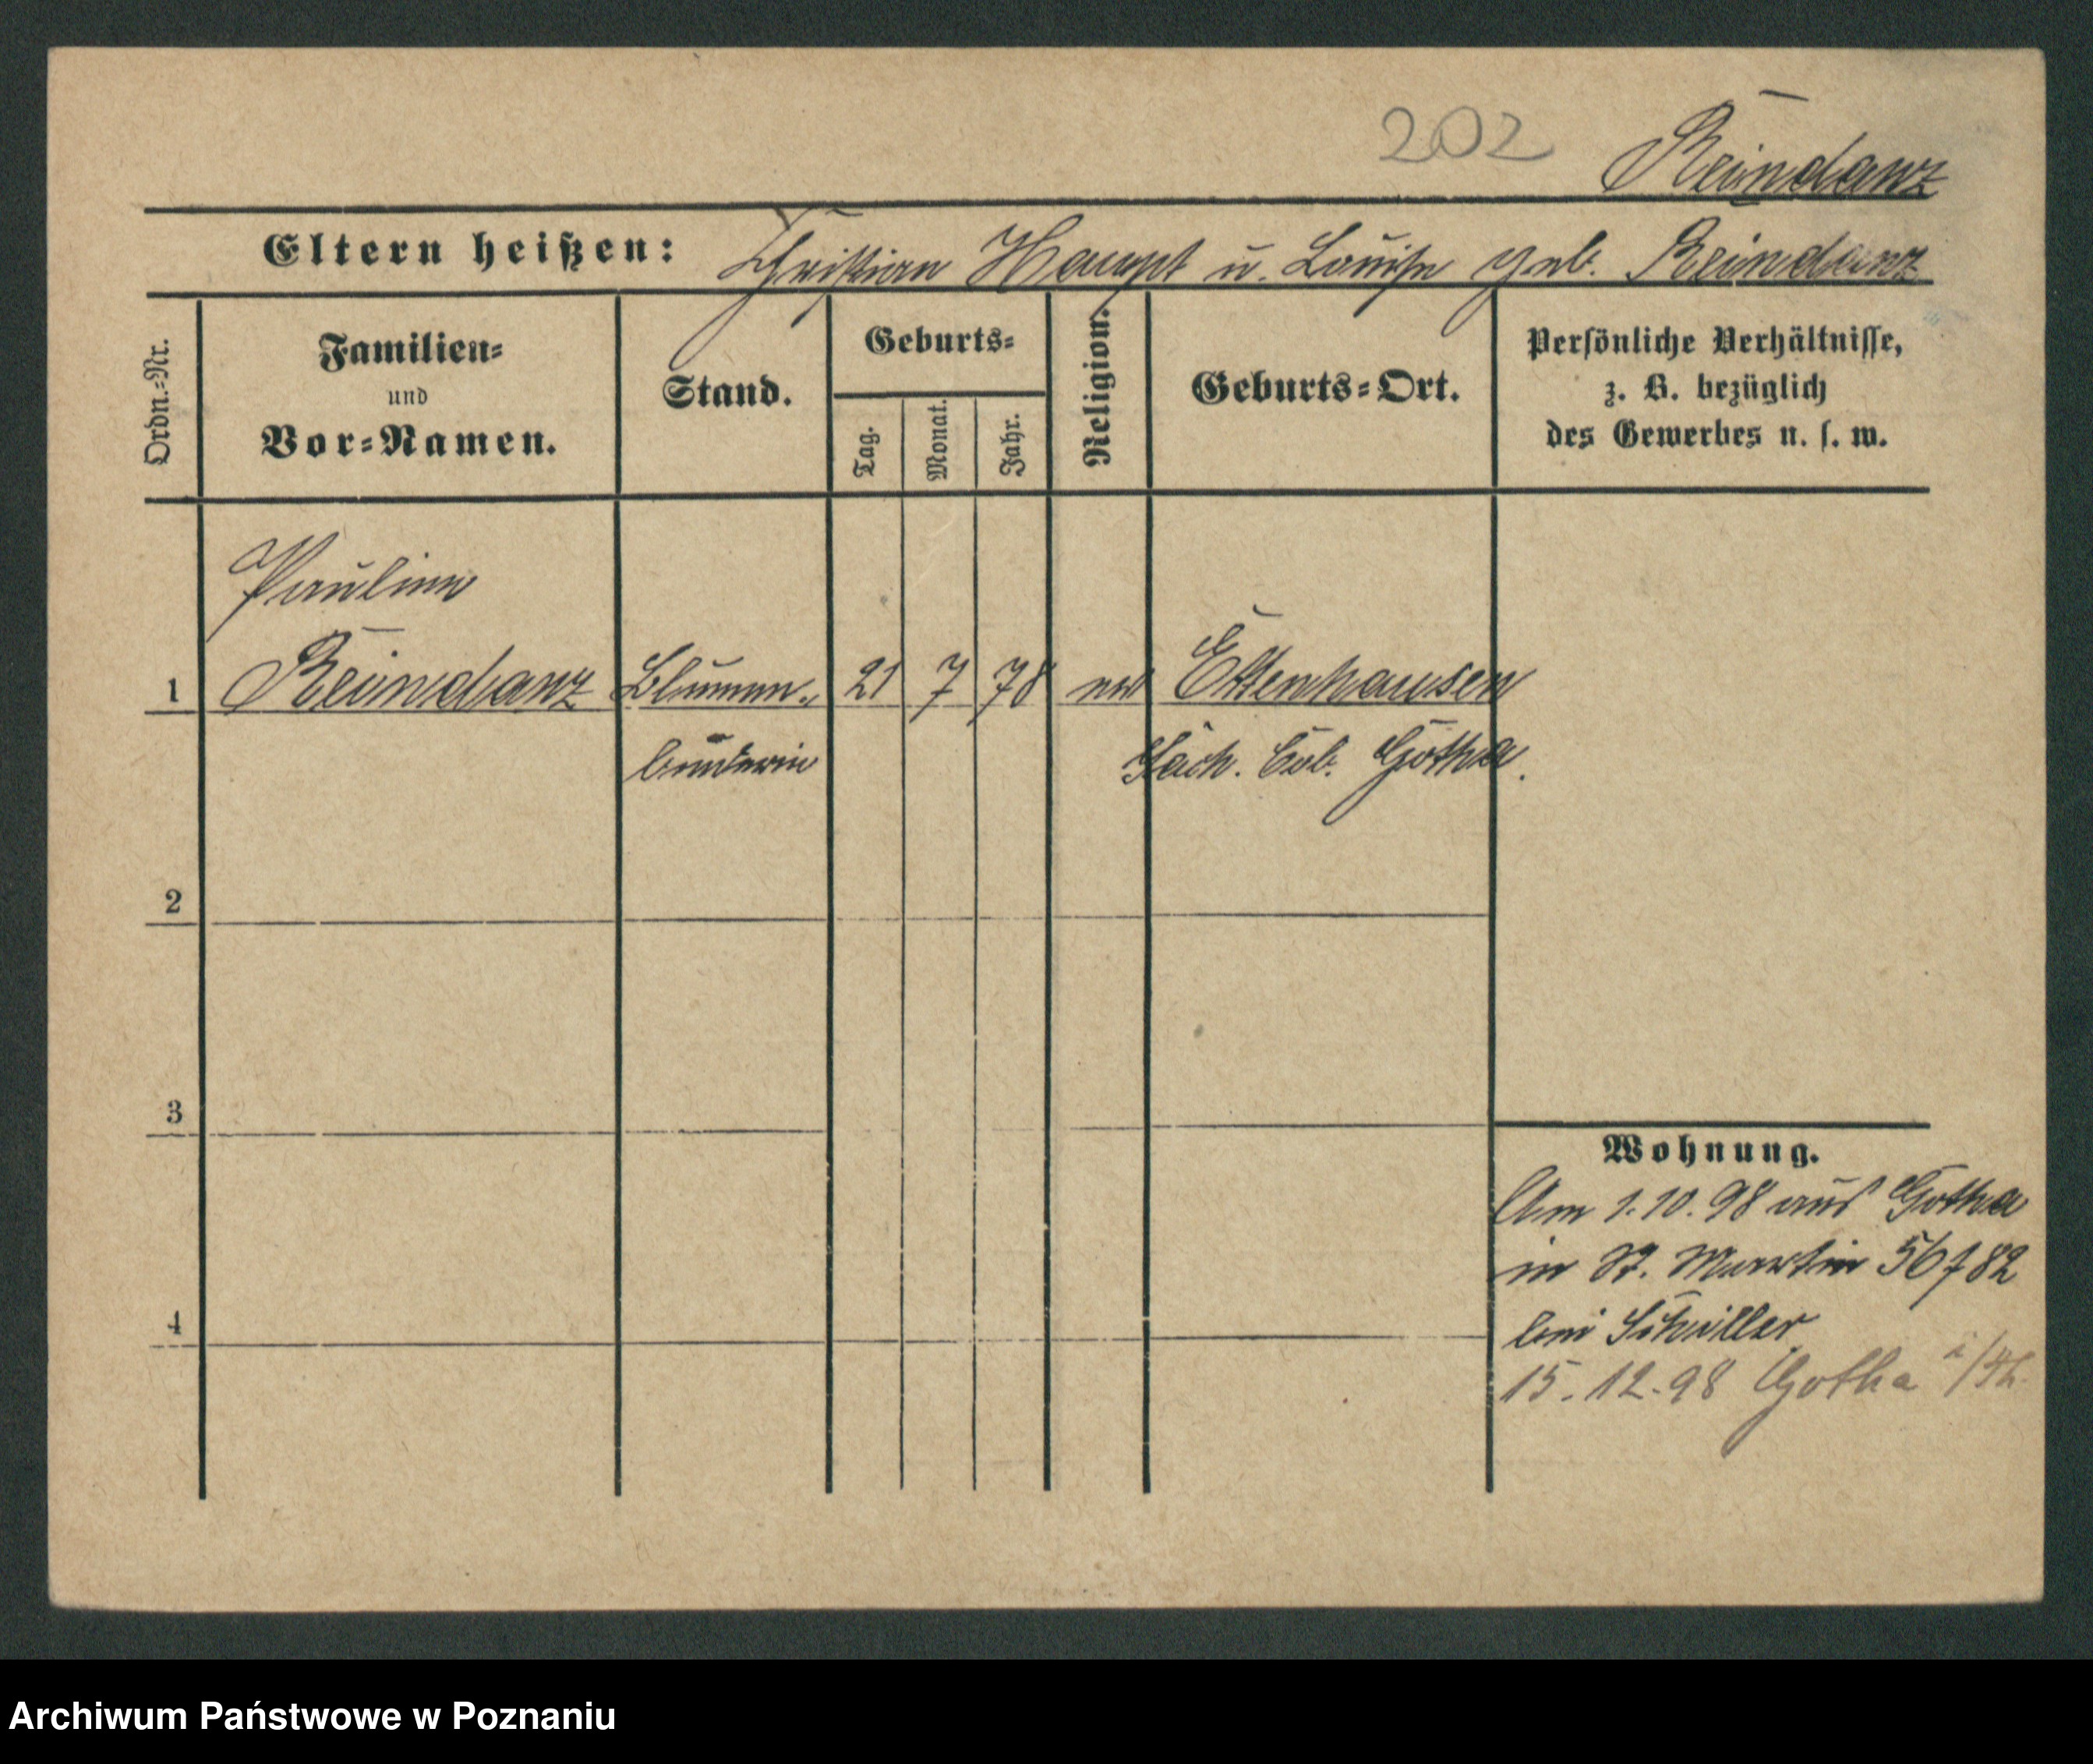 202 Reimdanz
Eltern heißen: Christian Haupt u. Louise geb. Reimdanz
Ordn.-Nr.
Familien-
und
Vor-Namen.
Stand.
Geburts-
Tag.
Monat.
Jahr.
Religion.
Geburts-Ort.
Persönliche Verhältnisse,
z. B. bezüglich
des Gewerbes u. s. w.
Pauline
1 Reimdanz Blumen- 21 7 78 ev Ettenhausen
binderin Säch. Cob. Gotha.
2
3
4
Wohnung.
Am 1.10.98 aus Gotha
in St. Martin 56/82
bei Schiller
15.12.98 Gotha
Archiwum Państwowe w Poznaniu